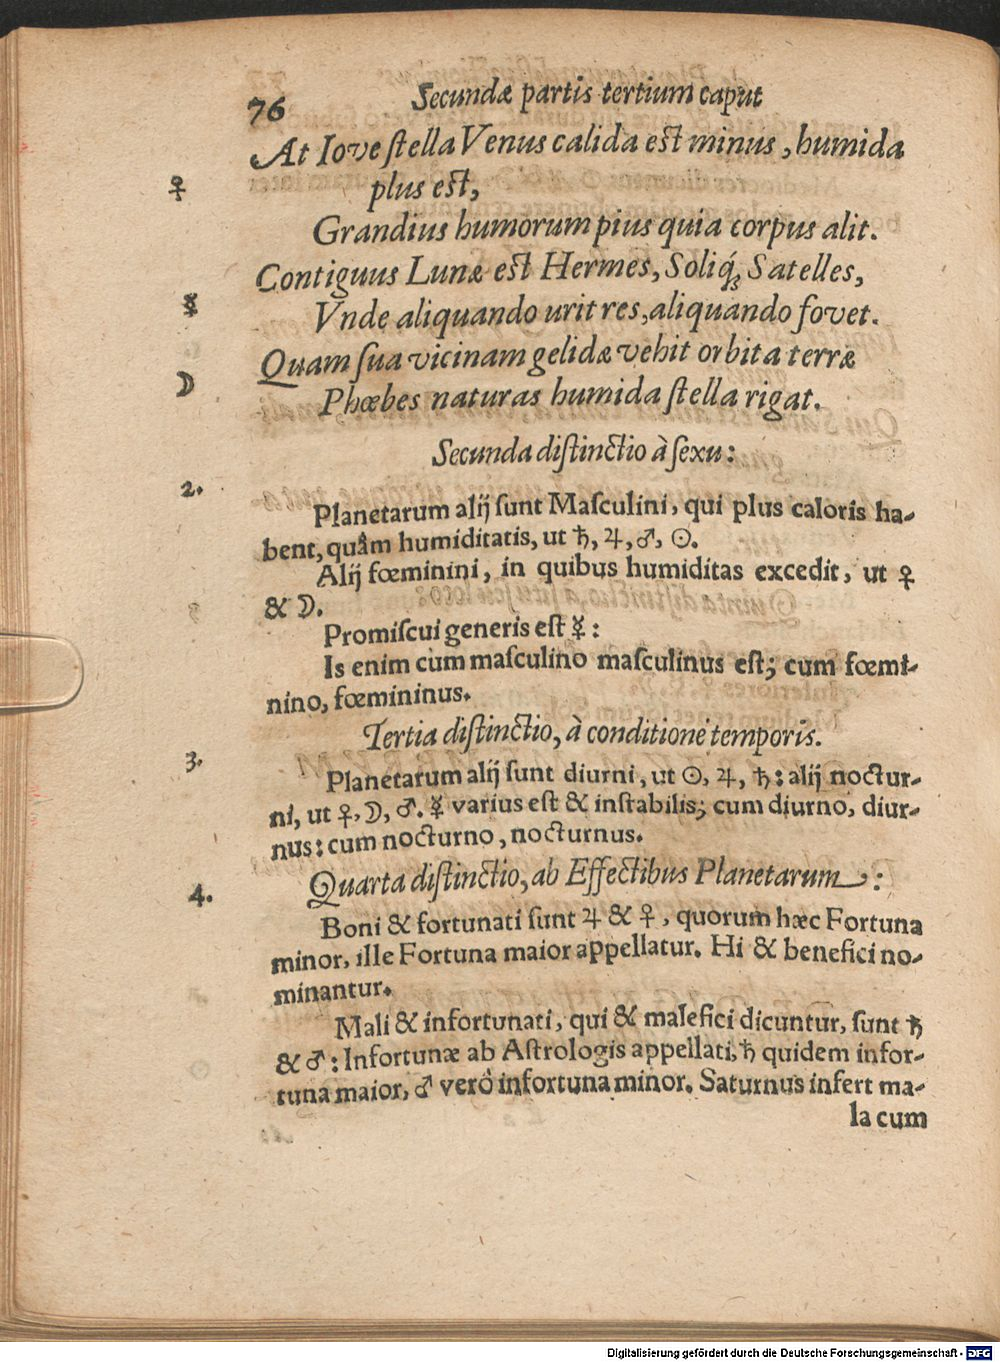 76 Secundæ partis tertium caput
At Iove ſtella Venus calida eſt minus, humida
♀ plus eſt,
Grandius humorum pius quia corpus alit.
Contiguus Lunæ eſt Hermes, Soliq́ꝫ Satelles,
☿ Vnde aliquando urit res, aliquando fovet.
Quam ſua vicinam gelidæ vehit orbita terræ
☽ Phœbes naturas humida ſtella rigat.
Secunda diſtinctio à ſexu:
2. Planetarum alij ſunt Maſculini, qui plus caloris ha-
bent, quâm humiditatis, ut ♄, ♃, ♂, ☉.
Alij fœminini, in quibus humiditas excedit, ut ♀
& ☽.
Promiſcui generis eſt ☿:
Is enim cum maſculino maſculinus eſt; cum fœmi-
nino, fœmininus.
Tertia diſtinctio, à conditione temporis.
3. Planetarum alij ſunt diurni, ut ☉, ♃, ♄: alij noctur-
ni, ut ♀, ☽, ♂. ☿ varius eſt & inſtabilis; cum diurno, diur-
nus: cum nocturno, nocturnus.
4. Quarta diſtinctio, ab Effectibus Planetarum:
Boni & fortunati ſunt ♃ & ♀, quorum hæc Fortuna
minor, ille Fortuna maior appellatur. Hi & benefici no-
minantur.
Mali & infortunati, qui & malefici dicuntur, ſunt ♄
& ♂: Infortunæ ab Aſtrologis appellati, ♄ quidem infor-
tuna maior, ♂ verô infortuna minor. Saturnus infert ma-
la cum
Digitalisierung gefördert durch die Deutsche Forschungsgemeinschaft - DFG